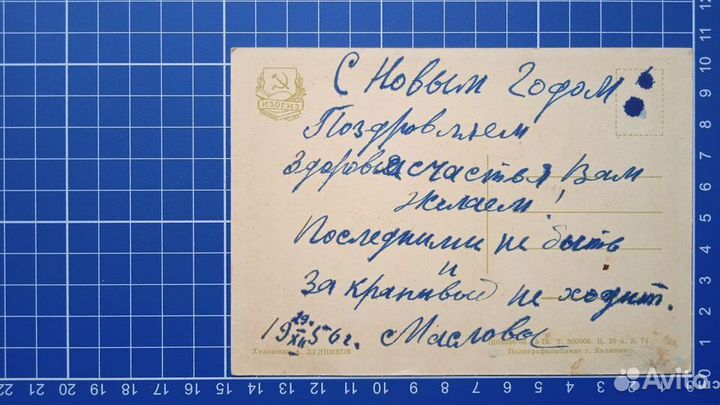 ИЗОГИЗ
С Новым Годом
Поздровляем
Здоровья счастья Вам
желаем!
Последними не быть
и
За крапивой не ходит.
19 29/XII 56 г. Маслова
Художник А. ДУДНИКОВ
Т. 500000. Ц. 20 к. З. 74
Полиграфкомбинат г. Калинин
22 21 20 19 18 17 16 15 14 13 12 11 10 9 8 7 6 5 4 3 2 1 0
0 1 2 3 4 5 6 7 8 9 10 11 12
Avito